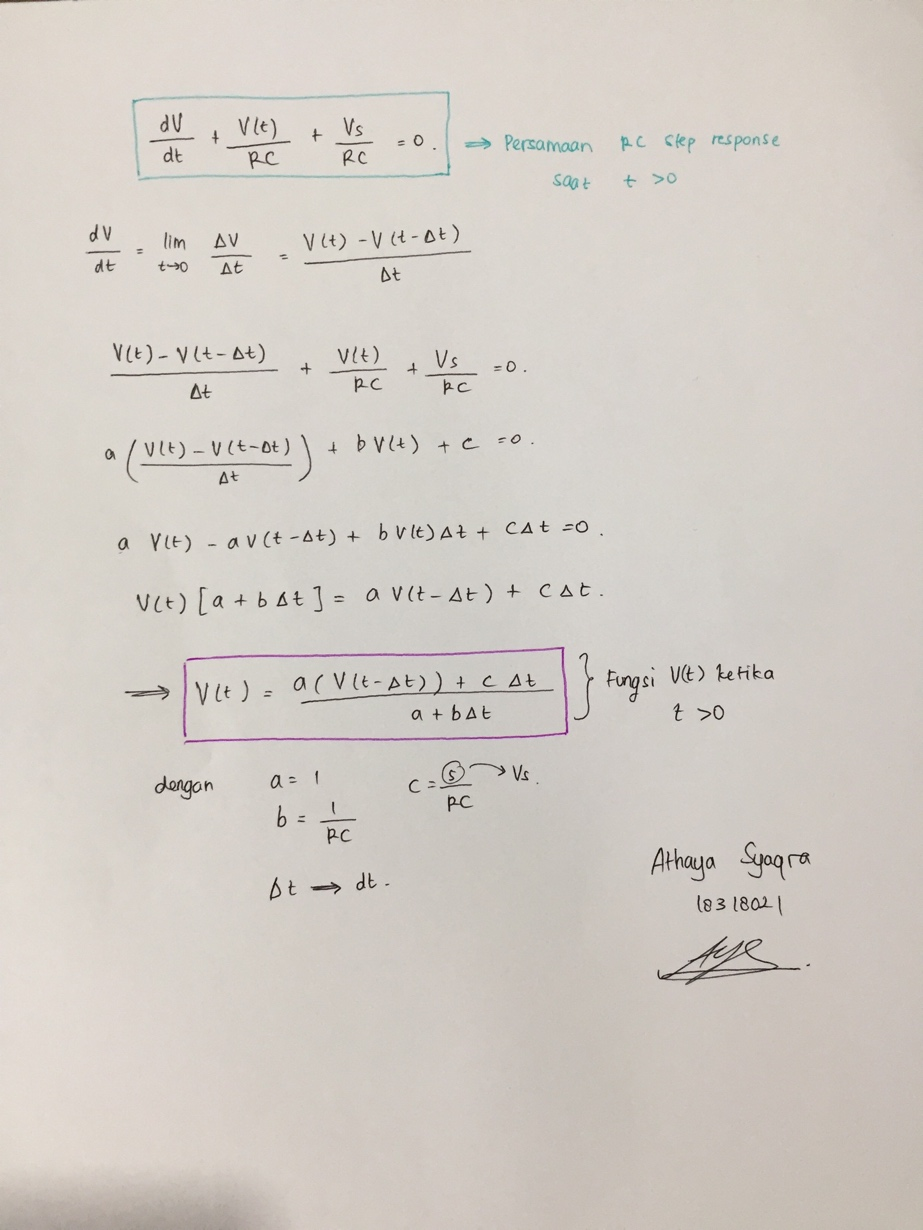 dV/dt + V(t)/RC + Vs/RC = 0. ⇒ Persamaan RC step response
saat t >0
dV/dt = lim t→0 ΔV/Δt = V(t) - V(t-Δt)/Δt
V(t) - V(t-Δt)/Δt + V(t)/RC + Vs/RC = 0.
a (V(t) - V(t-Δt)/Δt) + b V(t) + c = 0.
a V(t) - a V(t-Δt) + b V(t) Δt + c Δt = 0.
V(t) [a + b Δt] = a V(t-Δt) + c Δt.
⇒ V(t) = a(V(t-Δt)) + c Δt/a + bΔt } Fungsi V(t) ketika
t >0
dengan a = 1 c = s/RC → Vs.
b = 1/RC
Δt ⇒ dt.
Athaya Syaqra
18318021